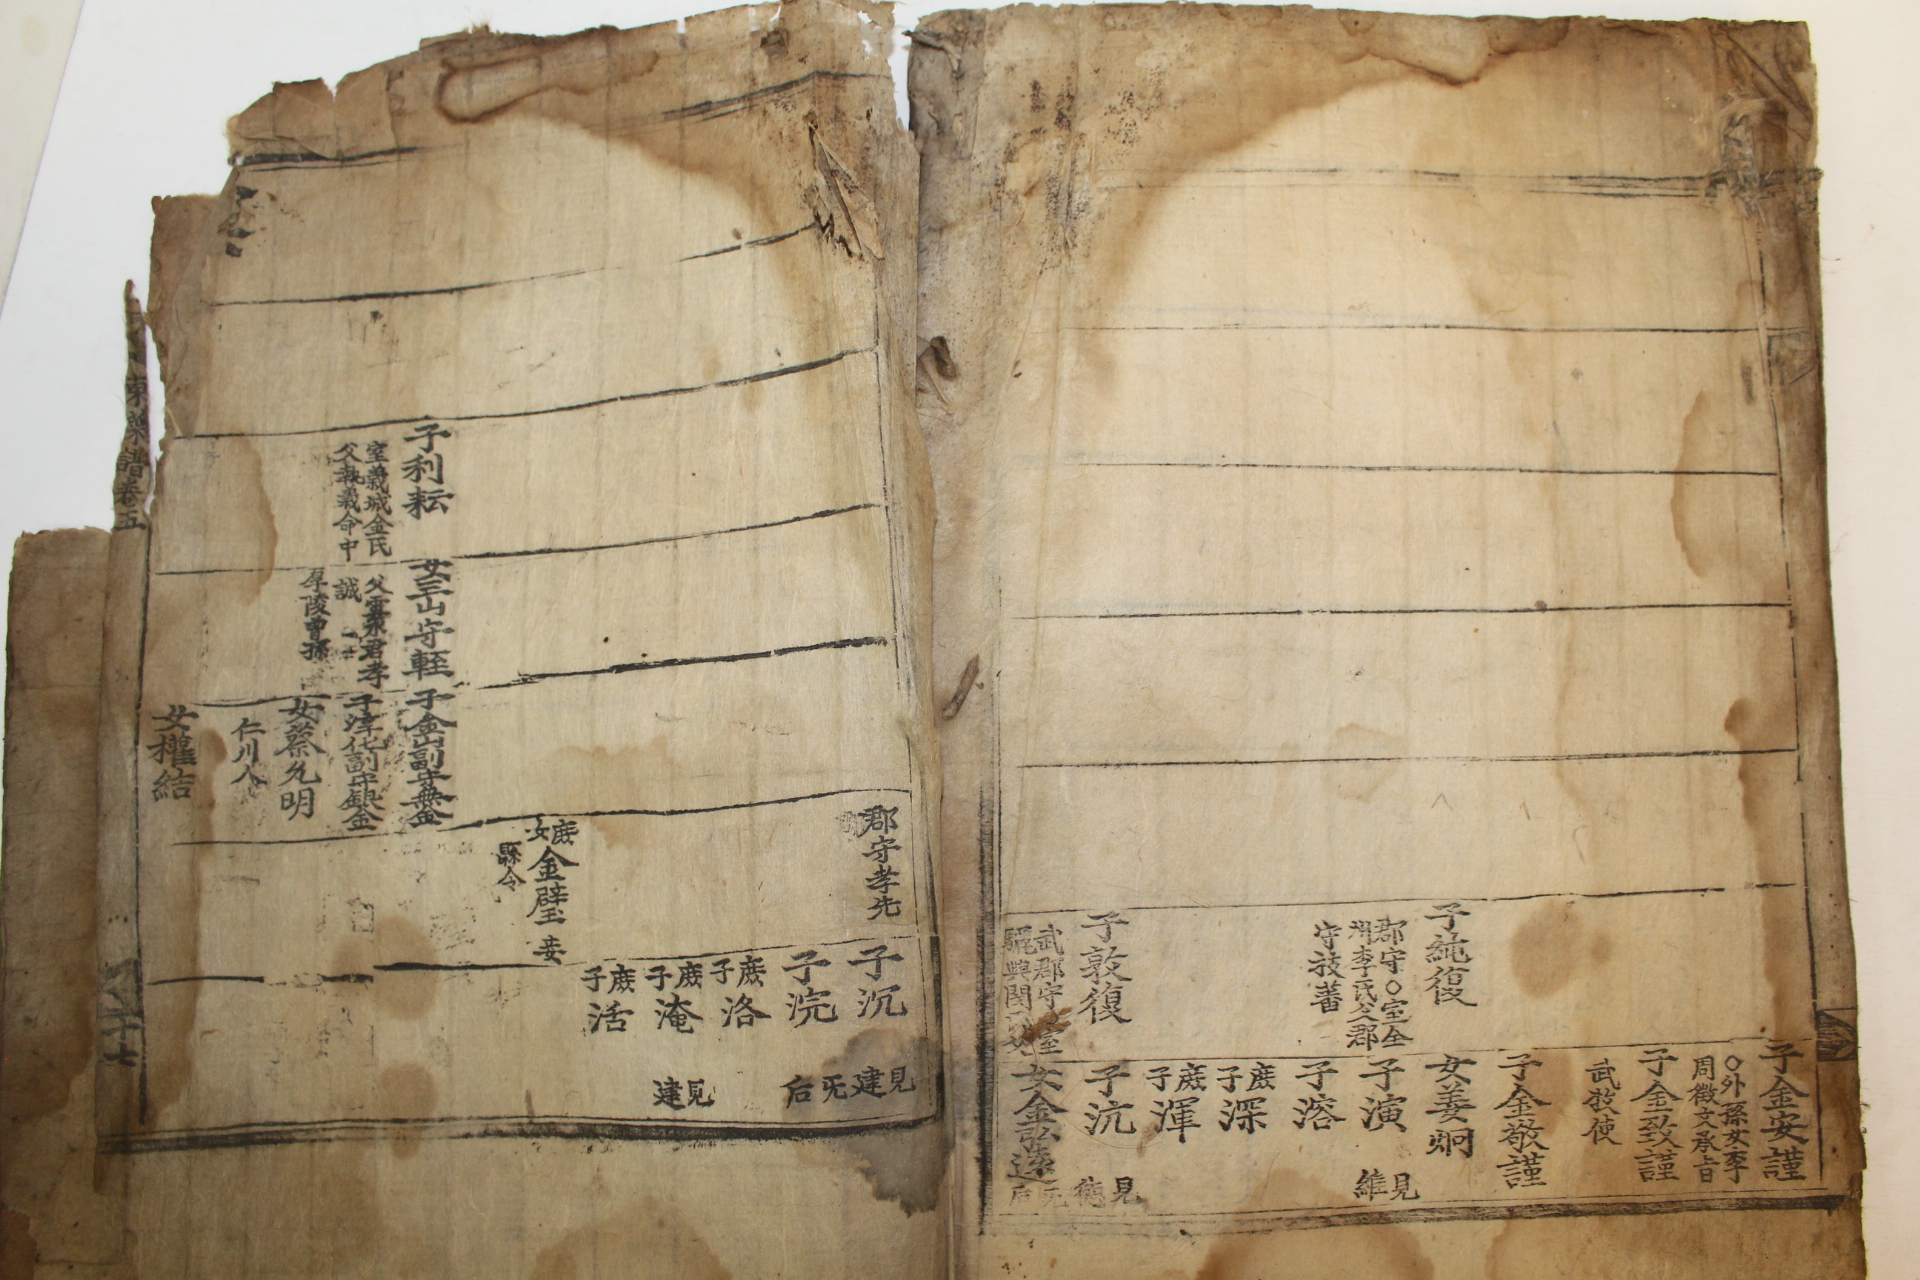 子純復
郡守○室全
州李氏父郡
守枝蕃
子敦復
武郡守
驪興閔
子金安謹
○外孫女李
周徵文承旨
子金致謹
武牧使
子金敬謹
女姜炯
子演
見
維
子溶
庶子深
庶子渾
子沆
見
德
女金弘遠
郡守孝先
庶女金璧妾
縣令
子沉
見
建
子浣
旡
后
庶子洛
庶子淹
見
建
庶子活
子利耘
室義城金氏
父執義命中
女三山守輊
父雲水君孝
誠
厚陵曾孫
子金山副守無金
子淳化副守銀金
女蔡允明
仁川人
女權結
東槃譜卷五
十七